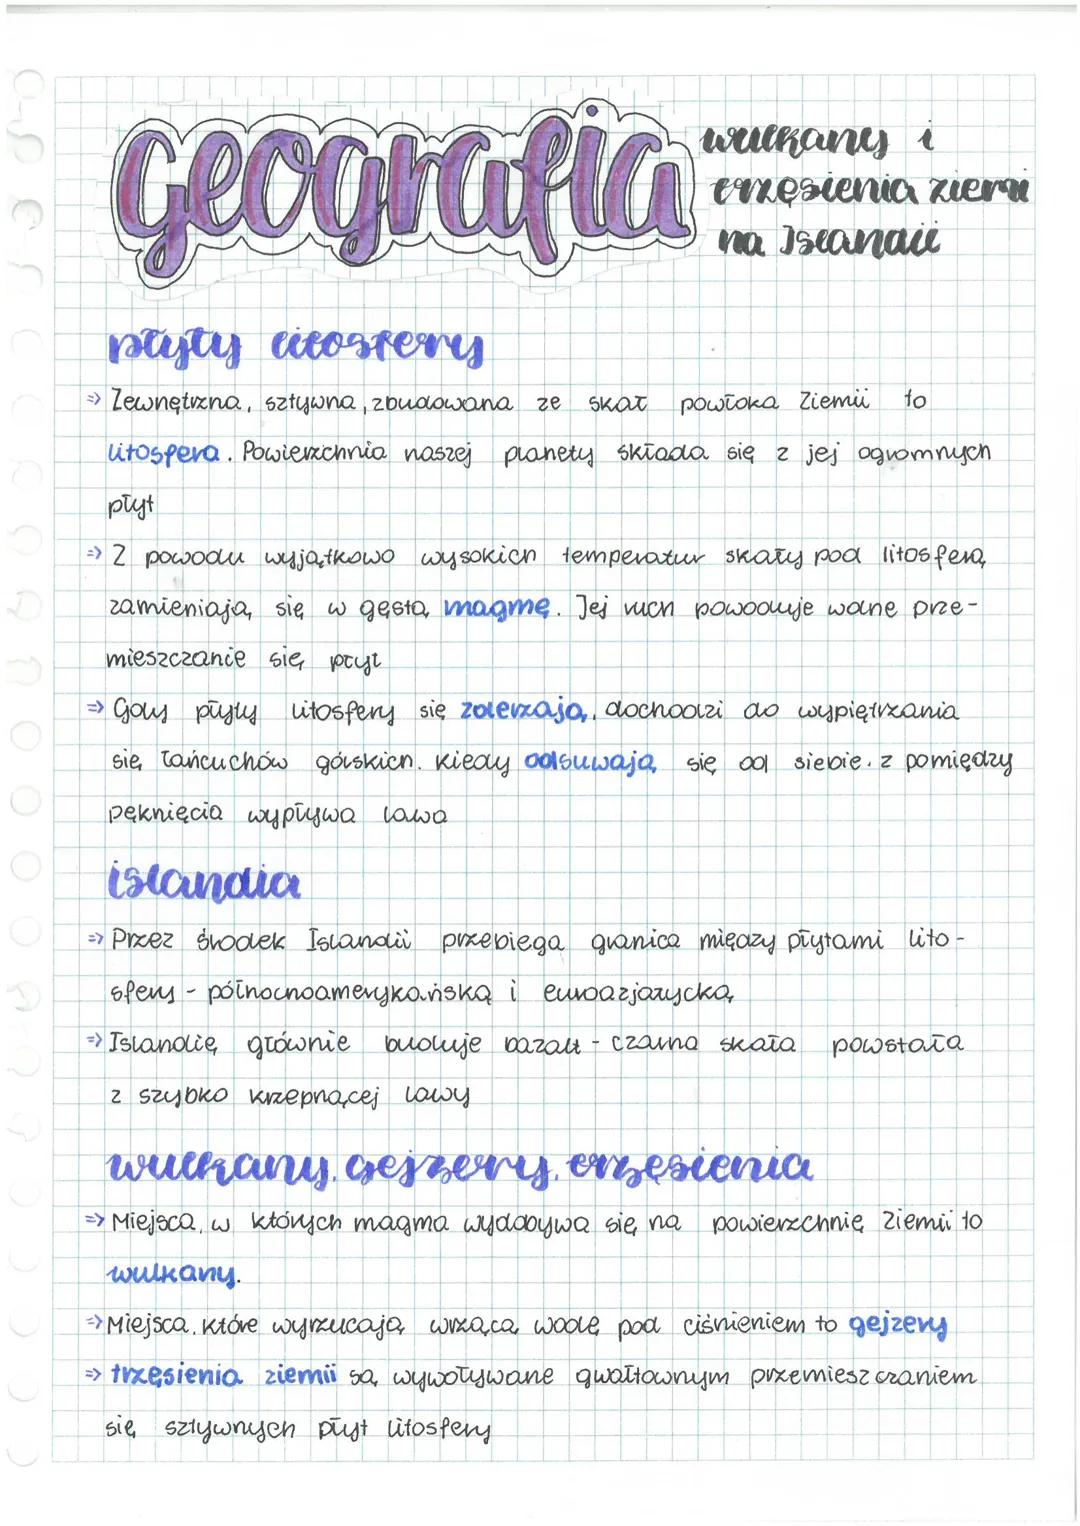 Geografia
wulkany i
trzęsienia ziemi
na Islandii
płyty litosfery
=> Zewnętrzna, sztywna, zbudowana ze skał powłoka Ziemii to
litosfera. Powierzchnia naszej planety składa się z jej ogromnych
płyt
=> Z powodu wyjątkowo wysokich temperatur skały pod litosferą
zamieniają się w gęstą magmę. Jej ruch powoduje wolne prze-
mieszczanie się płyt
=> Gdy płyty litosfery się zderzają, dochodzi do wypiętrzania
się łańcuchów górskich. Kiedy odsuwają się od siebie. z pomiędzy
pęknięcia wypływa lawa
islandia
=> Przez środek Islandii przebiega granica między płytami lito-
sfery - północnoamerykańską i euroazjazycką
=> Islandię głównie buduje bazalt - czarna skała powstała
z szybko krzepnącej lawy
wulkany, gejzery, trzęsienia
=> Miejsca, w których magma wydobywa się na powierzchnię Ziemii to
wulkany.
=> Miejsca, które wyrzucają wrzącą wodę pod ciśnieniem to gejzery
=> trzęsienia ziemii są wywoływane gwałtownym przemieszczaniem
się sztywnych płyt litosfery